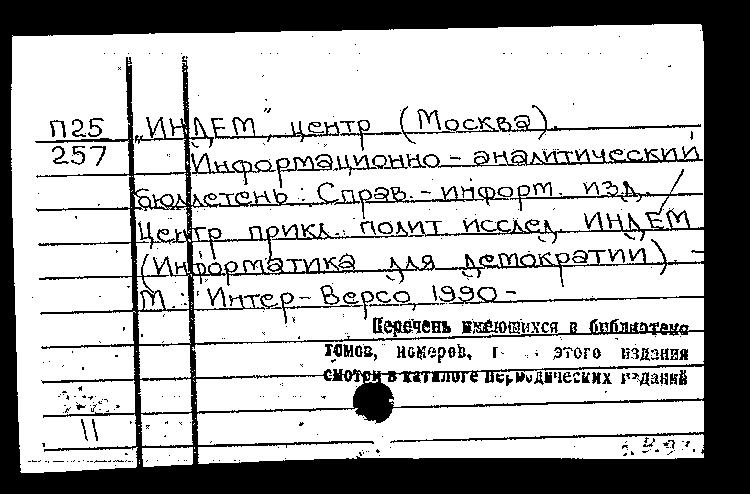 П25 „ИНДЕМ", центр (Москва).
257 Информационно-аналитический
бюллетень: Справ.-информ. изд. /
Центр прикл. полит исслед. ИНДЕМ
(Информатика для демократии). -
М.: Интер-Версо, 1990-
Перечень имеющихся в библиотеке
томов, номеров, этого издания
смотри в каталоге периодических изданий
11